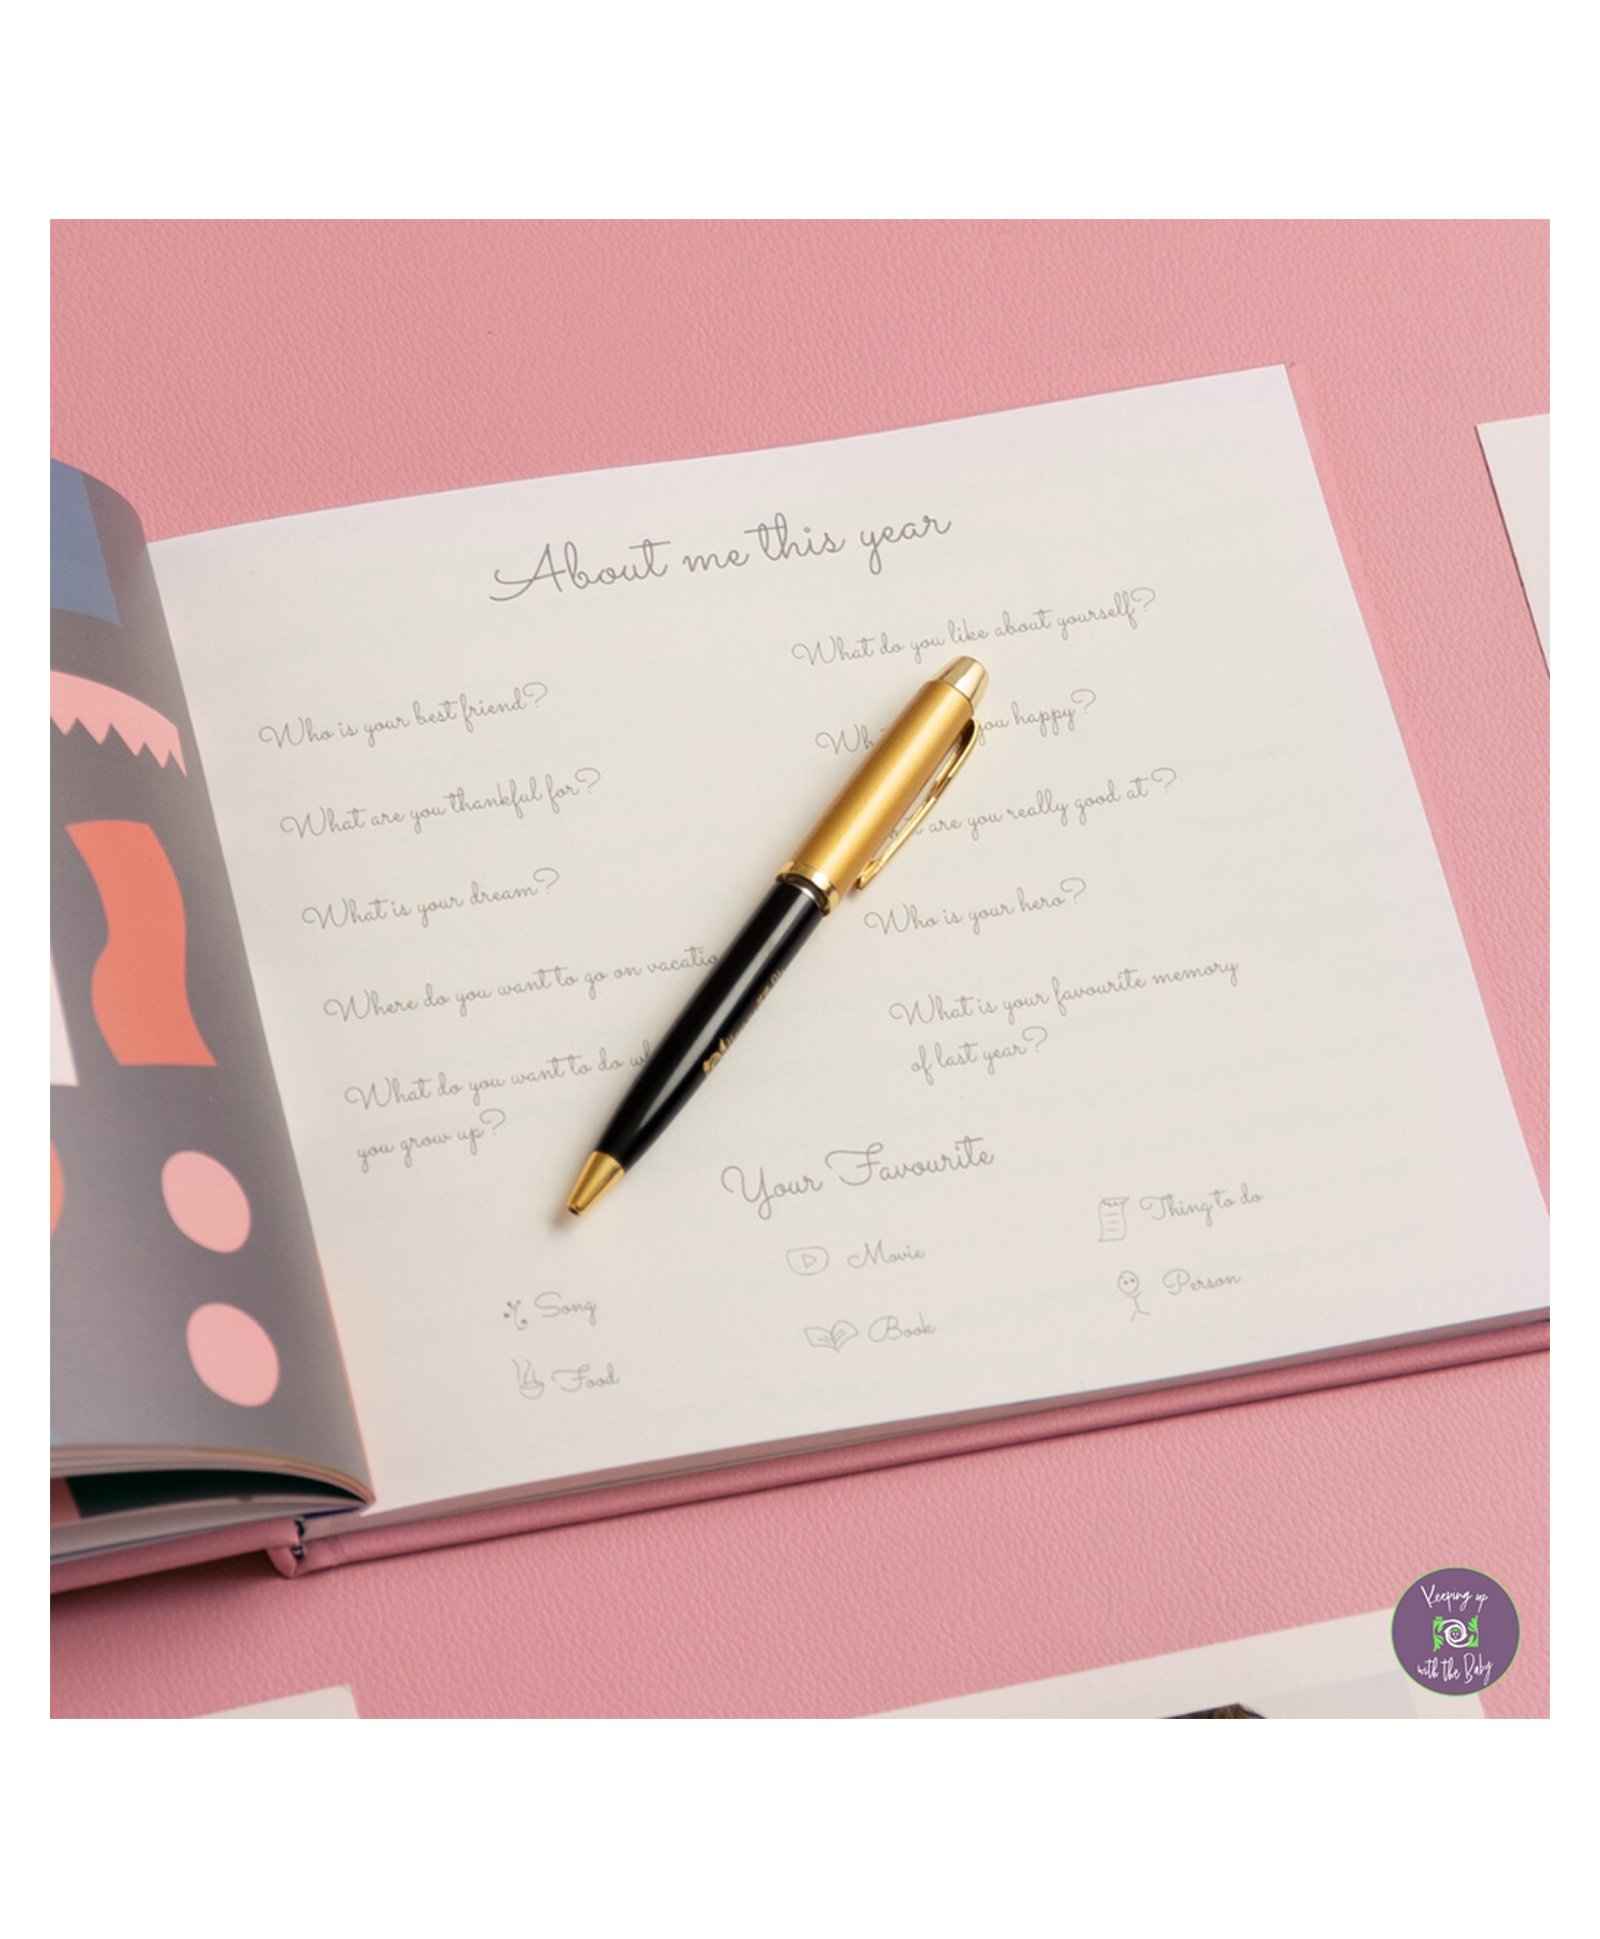 About me this year
Who is your best friend?
What are you thankful for?
What is your dream?
Where do you want to go on
What do you want to do
you grow up?
What do you like about yourself?
you happy?
are you really good at?
Who is your hero?
What is your favourite memory
of last year?
Your Favourite
Song
Food
Movie
Book
Thing to do
Person
Keeping up
with the Baby